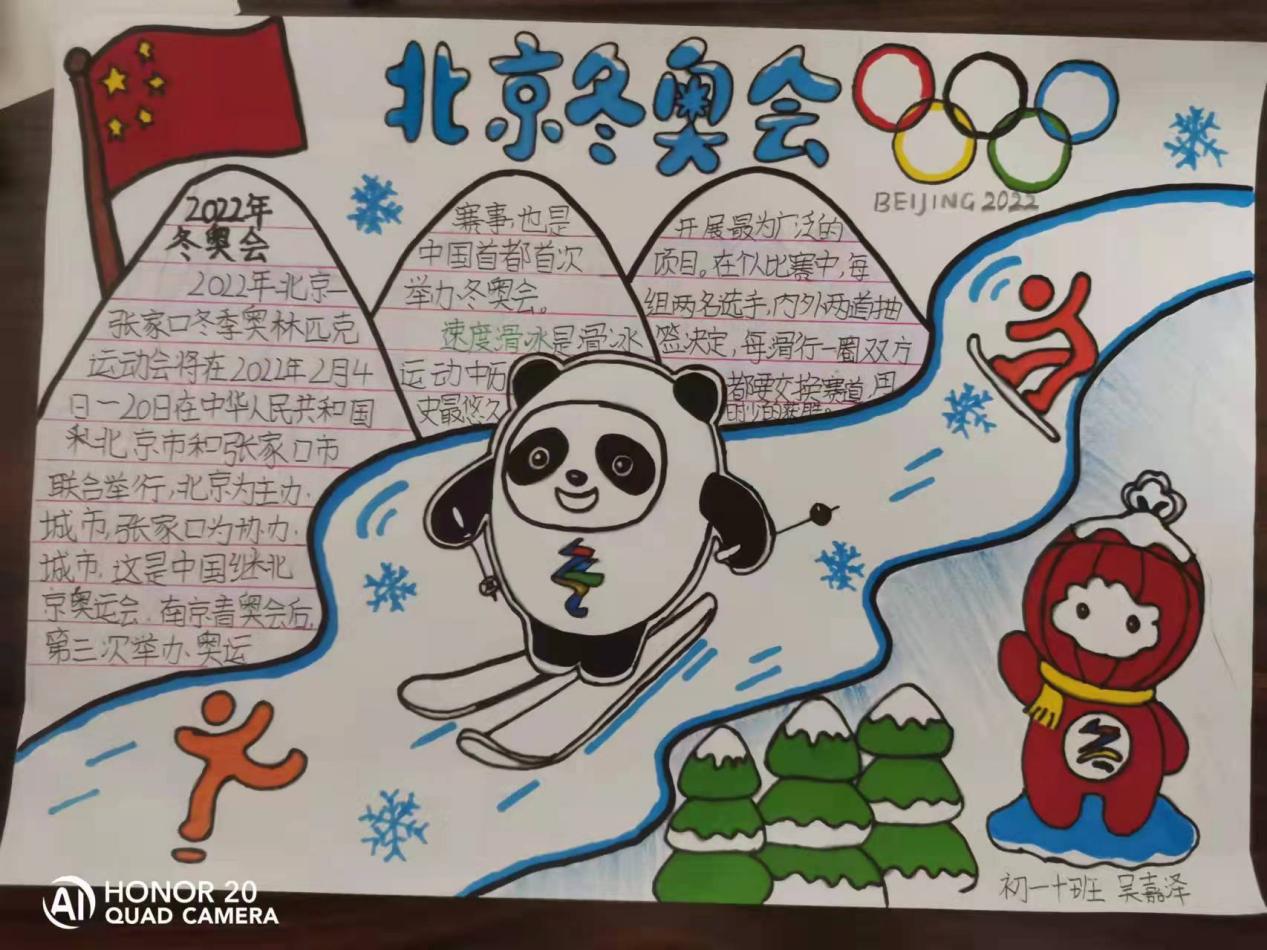 北京冬奥会
BEIJING 2022
2022年
冬奥会
2022年北京—
张家口冬季奥林匹克
运动会将在2022年2月4
日—20日在中华人民共和国
北京市和张家口市
联合举行,北京为主办
城市,张家口为协办
城市,这是中国继北
京奥运会、南京青奥会后,
第三次举办奥运
赛事,也是
中国首都首次
举办冬奥会。
速度滑冰是滑冰
运动中历
史最悠久
开展最为广泛的
项目。在个人比赛中,每
组两名选手,内外两道抽
签决定,每滑行一圈双方
都要交换赛道,用
初一十班 吴嘉泽
HONOR 20
QUAD CAMERA